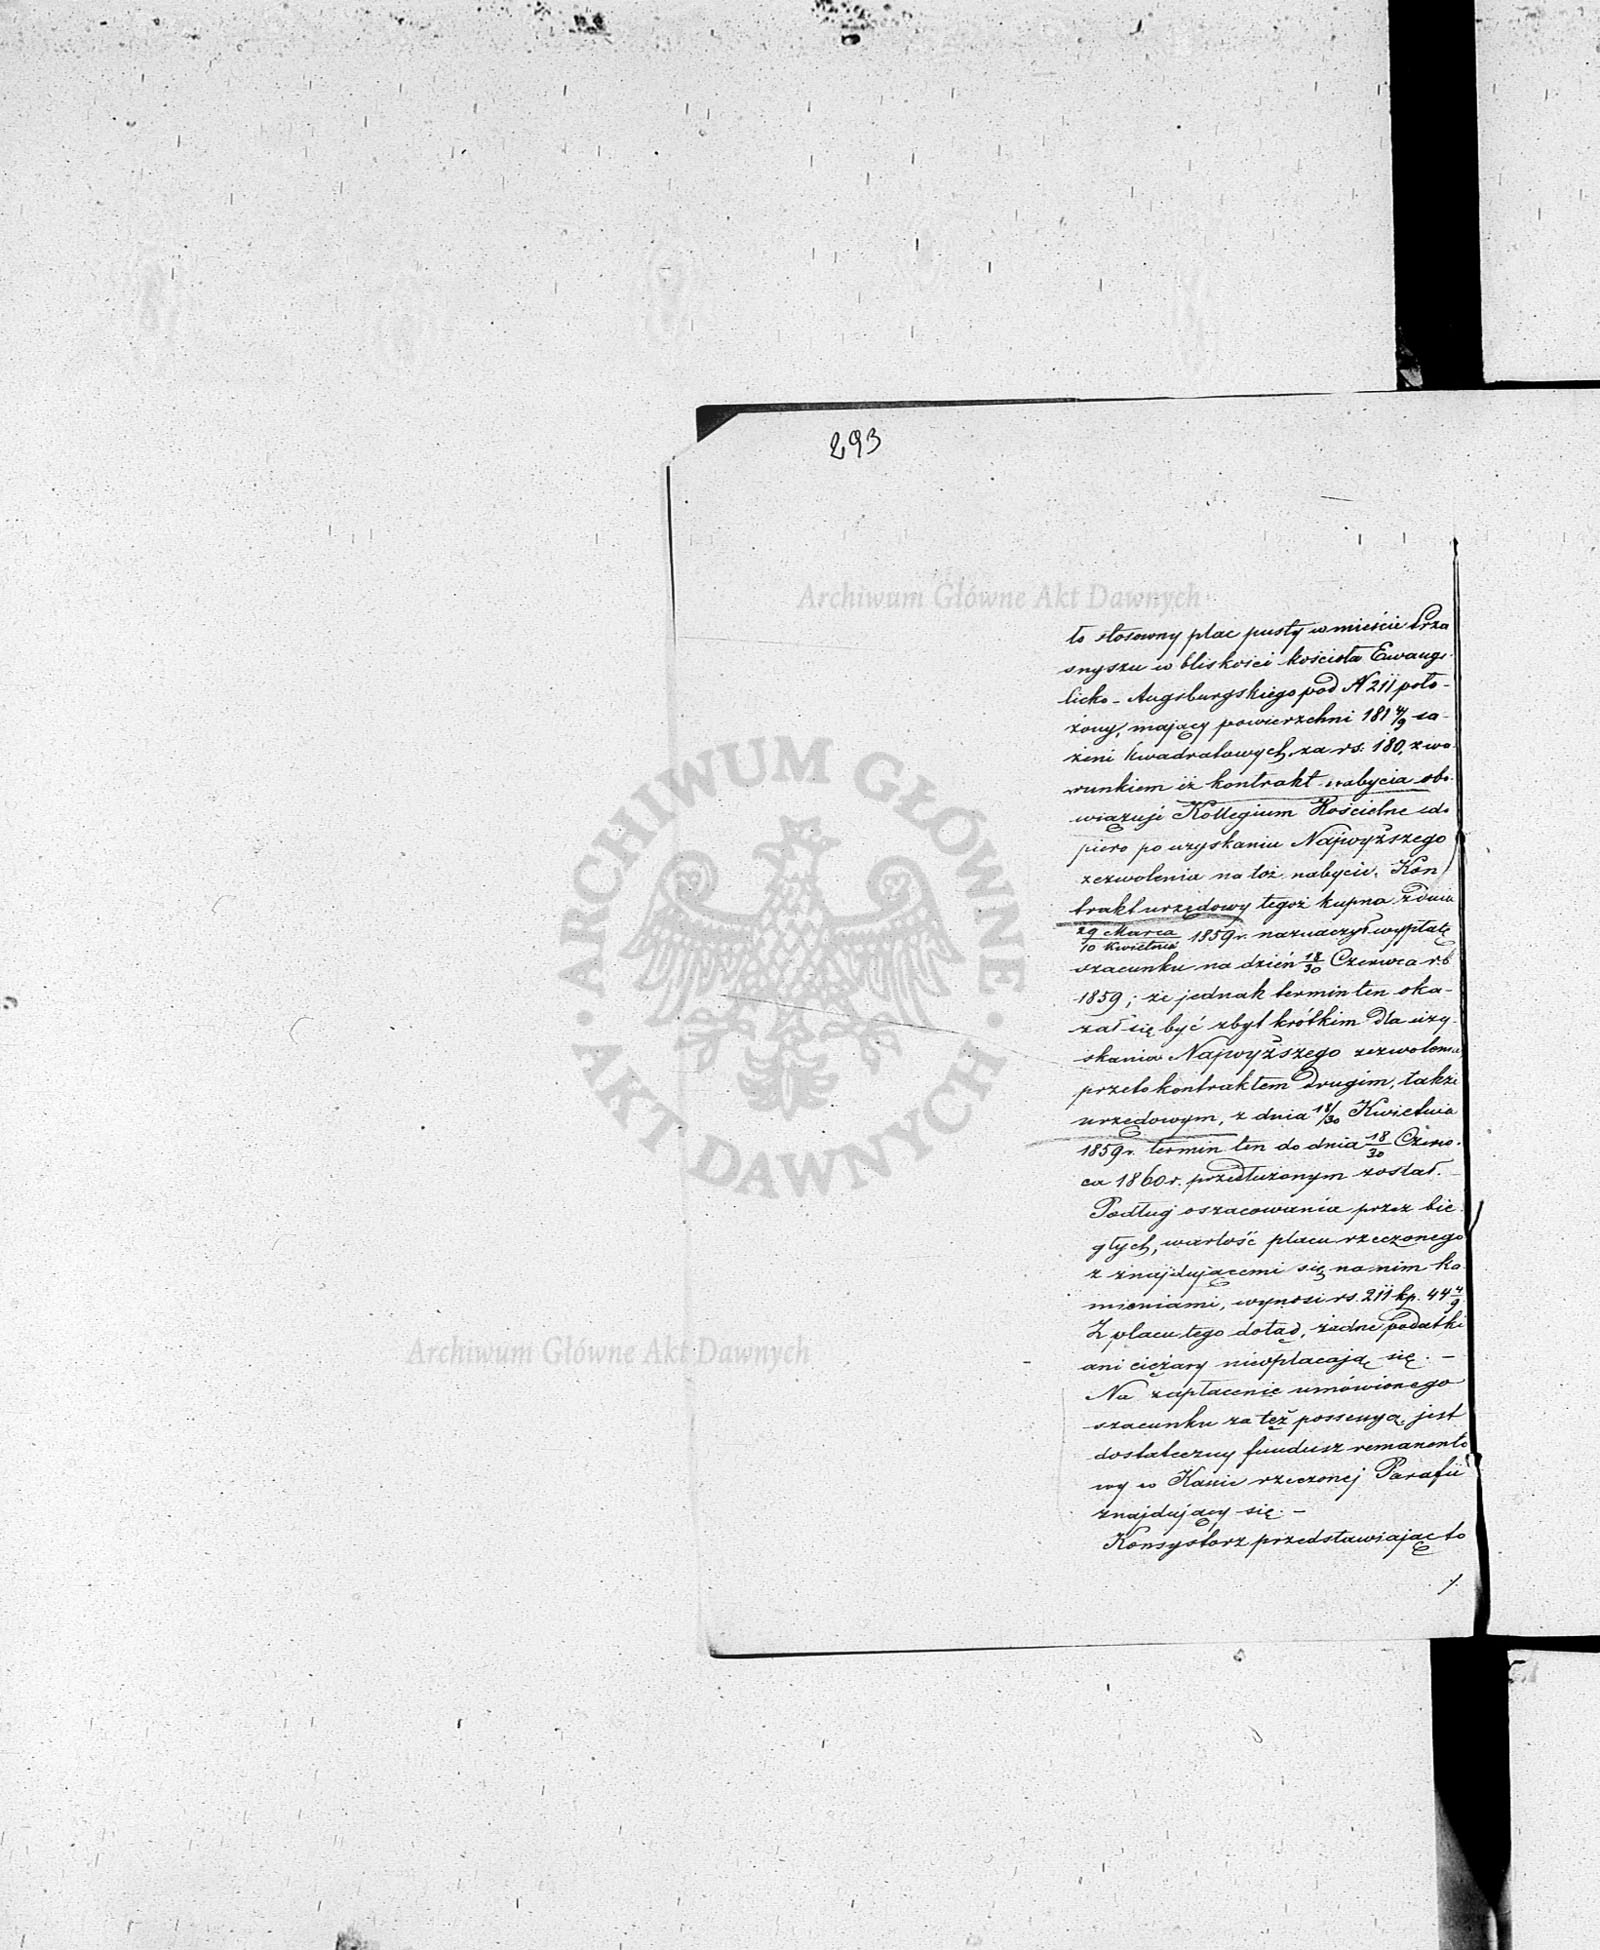 293
to stosowny plac pusty w mieście Prza
snyszu w bliskości kościoła Ewange-
licko-Augsburgskiego pod N 211 poło-
żony, mający powierzchni 181 4/9 są-
żeni kwadratowych, za rs. 180, z wa-
runkiem iż kontrakt nabycia obo-
wiązuje Kollegium Kościelne do
piero po uzyskaniu Najwyższego
zezwolenia na toż nabycie. Kon
trakt urzędowy tegoż kupna z dnia
29 Marca/10 Kwietnia 1859 r. naznaczył wypłatę
szacunku na dzień 18/30 Czerwca r.b
1859; że jednak termin ten oka-
zał się być zbyt krótkim dla uzy-
skania Najwyższego zezwolenia,
przeto kontraktem drugim, także
urzędowym, z dnia 18/30 Kwietnia
1859 r. termin ten do dnia 18/30 Czerw-
ca 1860 r. przedłużonym został. -
Podług oszacowania przez bie-
głych, wartość placu rzeczonego
z znajdującemi się na nim ka
mieniami, wynosi rs. 211 kp. 44 4/9
Z placu tego dotąd, żadne podatki
ani ciężary nieopłacają się. -
Na zapłacenie umówionego
szacunku za tęż possessyą, jest
dostateczny fundusz remanento
wy w Kassie rzeczonej Parafii
znajdujący się. -
Konsystorz przedstawiając to
/.
Archiwum Główne Akt Dawnych
ARCHIWUM GŁÓWNE
· AKT DAWNYCH ·
Archiwum Główne Akt Dawnych